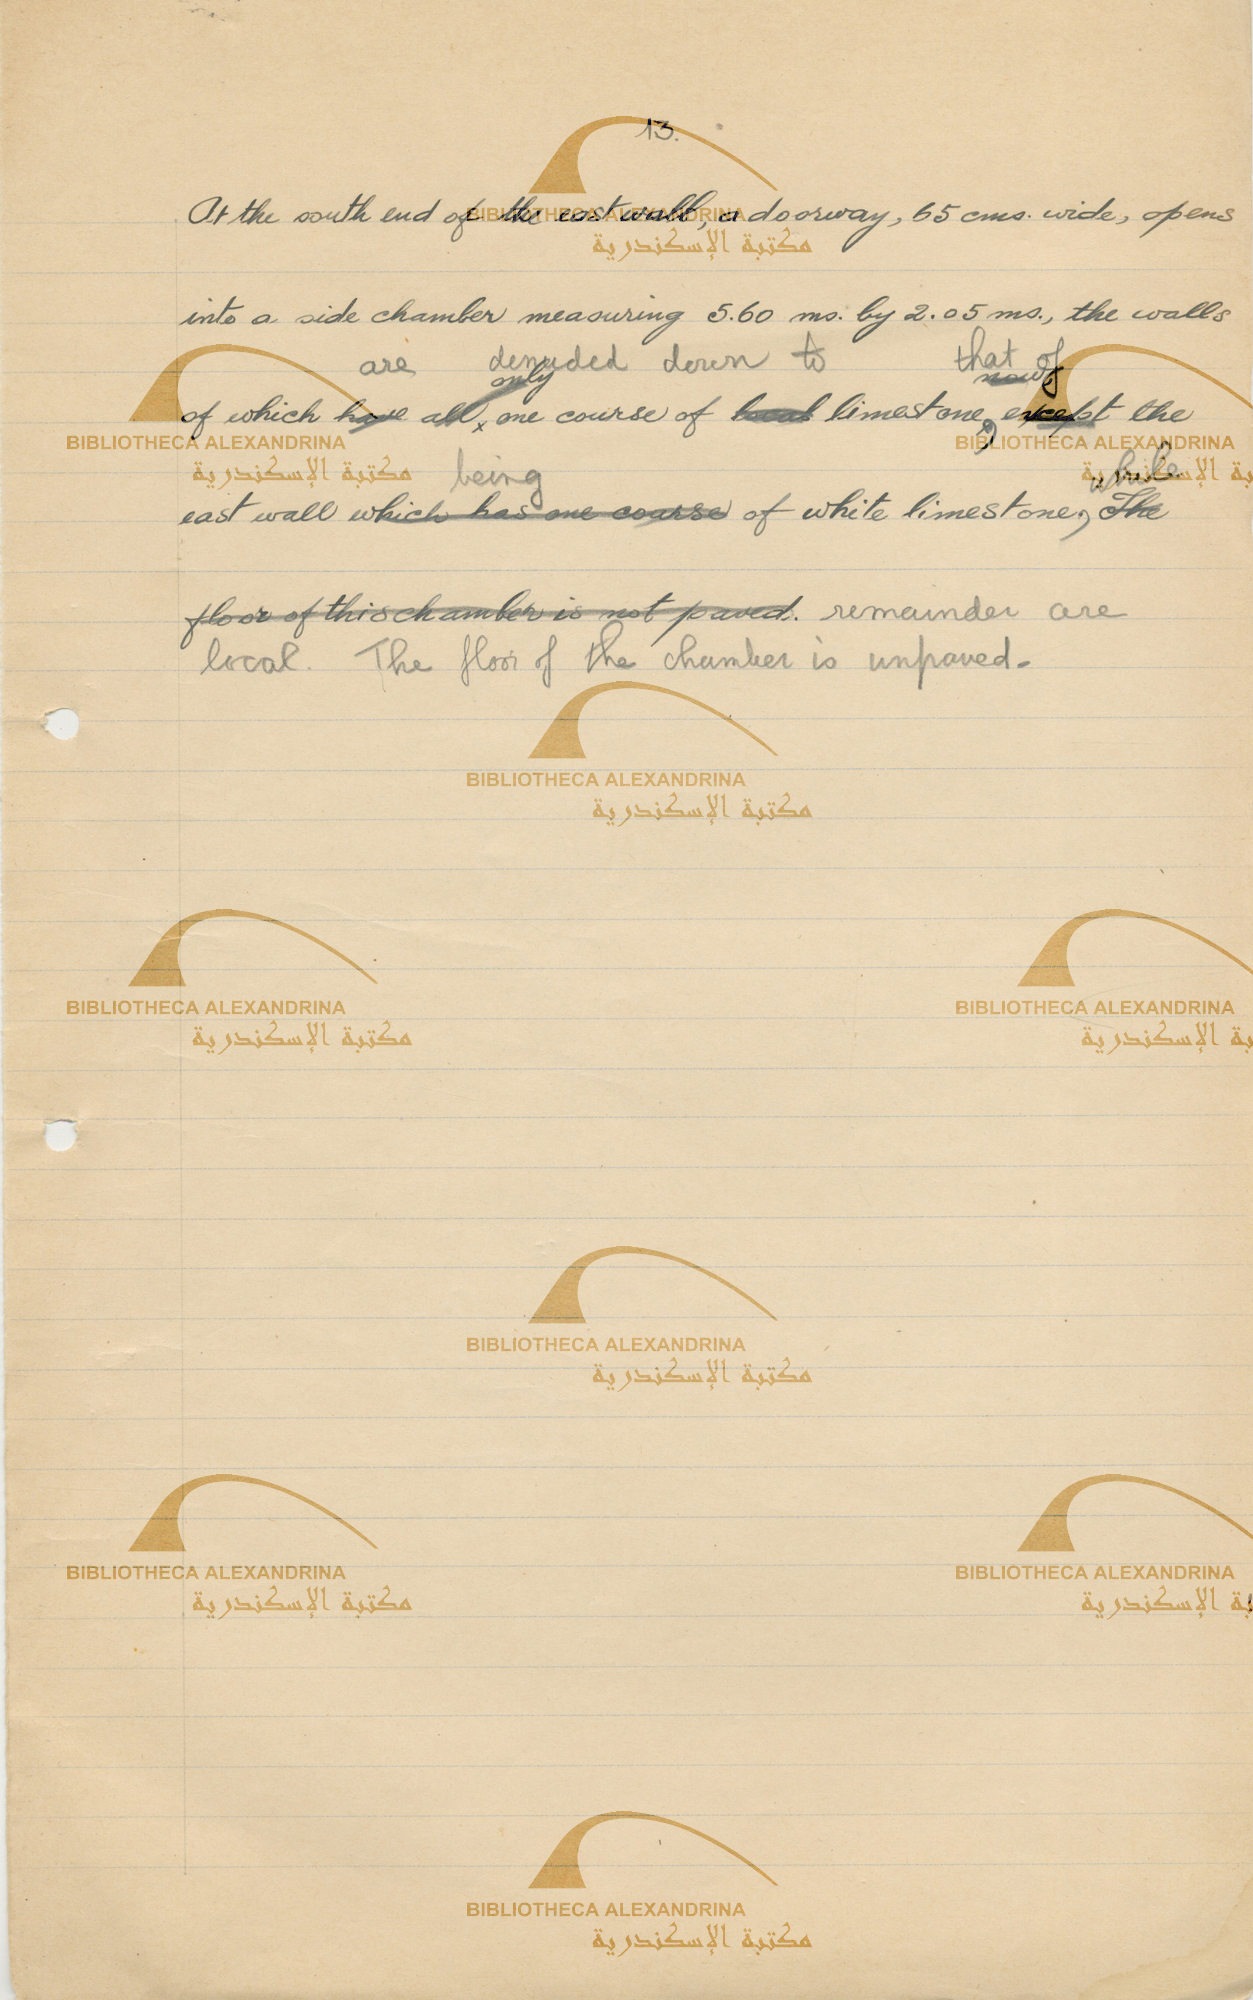 13.
At the south end of the east wall, a doorway, 65 cms. wide, opens
into a side chamber measuring 5.60 ms. by 2.05 ms., the walls
are denuded down to that of
only now
of which have all x one course of local limestone, except the
being while
east wall which has one coarse of white limestone, The
floor of this chamber is not paved. remainder are
local. The floor of the chamber is unpaved.
BIBLIOTHECA ALEXANDRINA
مكتبة الإسكندرية
BIBLIOTHECA ALEXANDRINA
مكتبة الإسكندرية
BIBLIOTHECA ALEXANDRINA
مكتبة الإسكندرية
BIBLIOTHECA ALEXANDRINA
مكتبة الإسكندرية
BIBLIOTHECA ALEXANDRINA
مكتبة الإسكندرية
BIBLIOTHECA ALEXANDRINA
مكتبة الإسكندرية
BIBLIOTHECA ALEXANDRINA
مكتبة الإسكندرية
BIBLIOTHECA ALEXANDRINA
مكتبة الإسكندرية
BIBLIOTHECA ALEXANDRINA
مكتبة الإسكندرية
BIBLIOTHECA ALEXANDRINA
مكتبة الإسكندرية